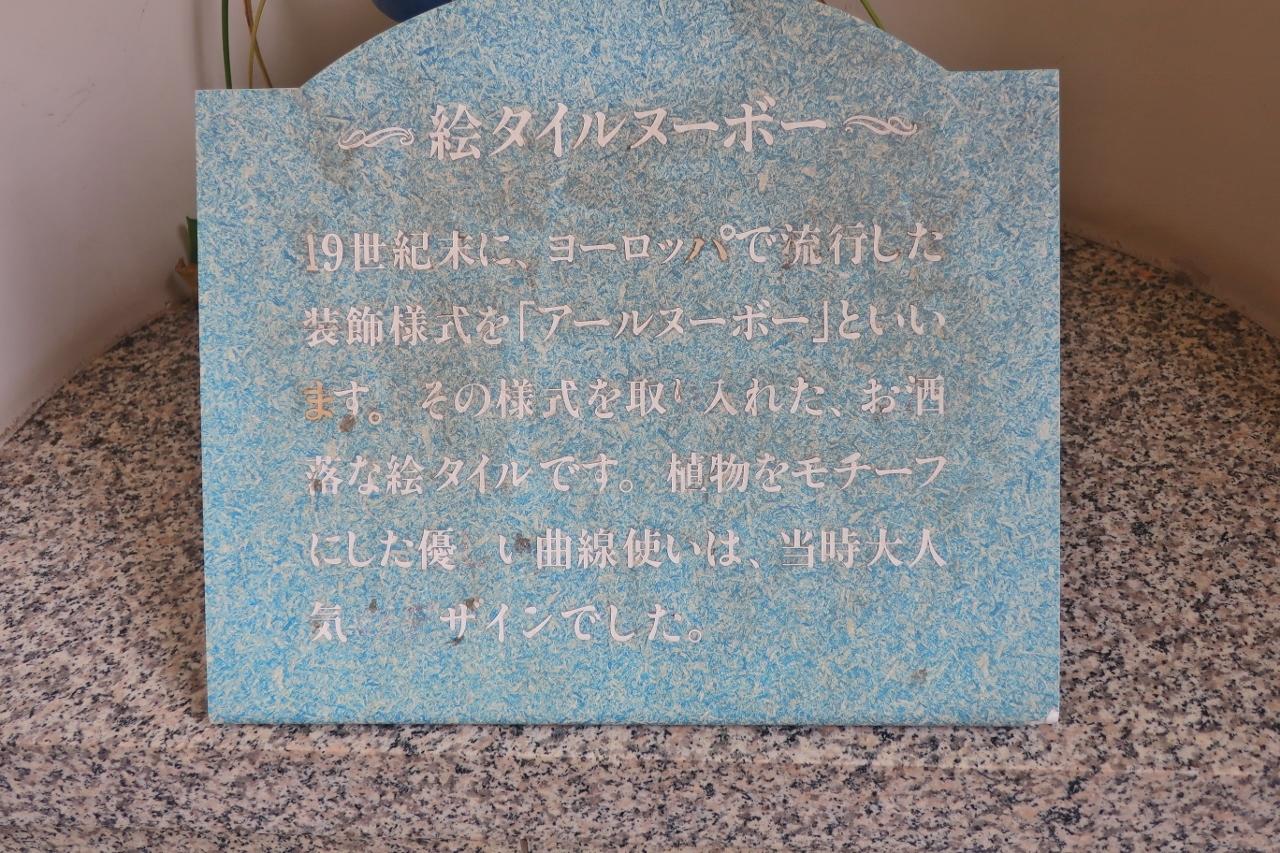 絵タイルヌーボー
19世紀末に、ヨーロッパで流行した
装飾様式を「アールヌーボー」といい
ます。その様式を取り入れた、お洒
落な絵タイルです。植物をモチーフ
にした優 い曲線使いは、当時大人
気 ザインでした。